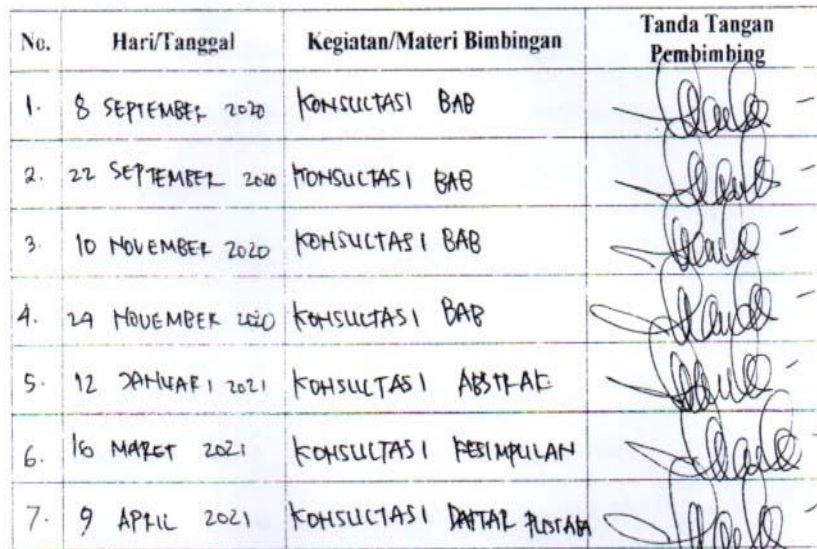 No. Hari/Tanggal Kegiatan/Materi Bimbingan Tanda Tangan
Pembimbing
1. 8 SEPTEMBER 2020 KONSULTASI BAB
2. 22 SEPTEMBER 2020 KONSULTASI BAB
3. 10 NOVEMBER 2020 KONSULTASI BAB
4. 24 NOVEMBER 2020 KONSULTASI BAB
5. 12 JANUARI 2021 KONSULTASI ABSTRAK
6. 16 MARET 2021 KONSULTASI KESIMPULAN
7. 9 APRIL 2021 KONSULTASI DAFTAR PUSTAKA